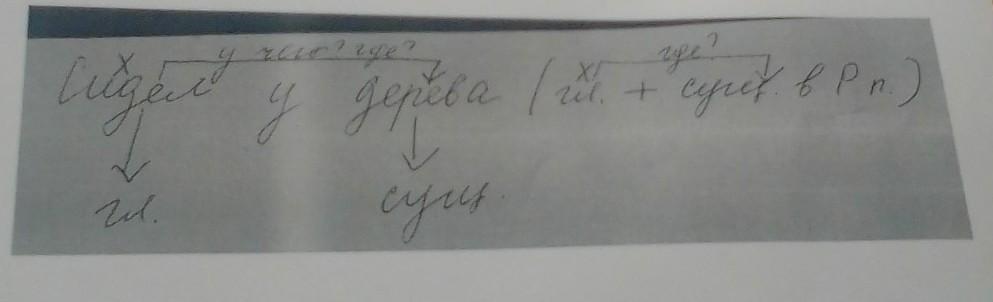 у чего? где? где?
х х
Сидел у дерева (гл. + сущ. в Р п.)
гл. сущ.